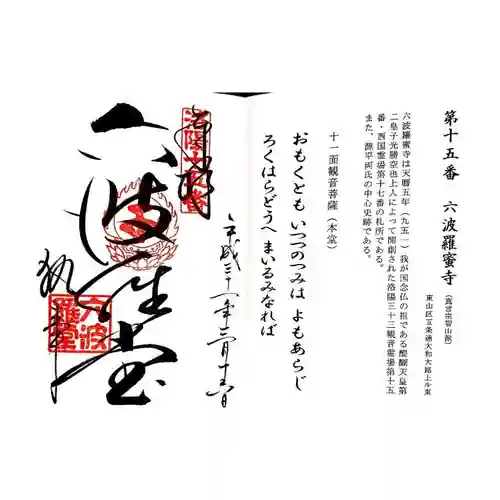 第十五番 六波羅蜜寺（真言宗智山派）
東山区五条通大和大路上ル東
六波羅蜜寺は天暦五年（九五一）我が国念仏の祖である醍醐天皇第
二皇子光勝空也上人によって開創された洛陽三十三観音霊場第十五
番・西国霊場第十七番の札所である。
また、源平両氏の中心史跡である。
十一面観音菩薩（本堂）
おもくとも いつつのつみは よもあらじ
ろくはらどうへ まいるみなれば
平成三十一年二月十五日
奉拝
六波羅堂
六波
羅堂